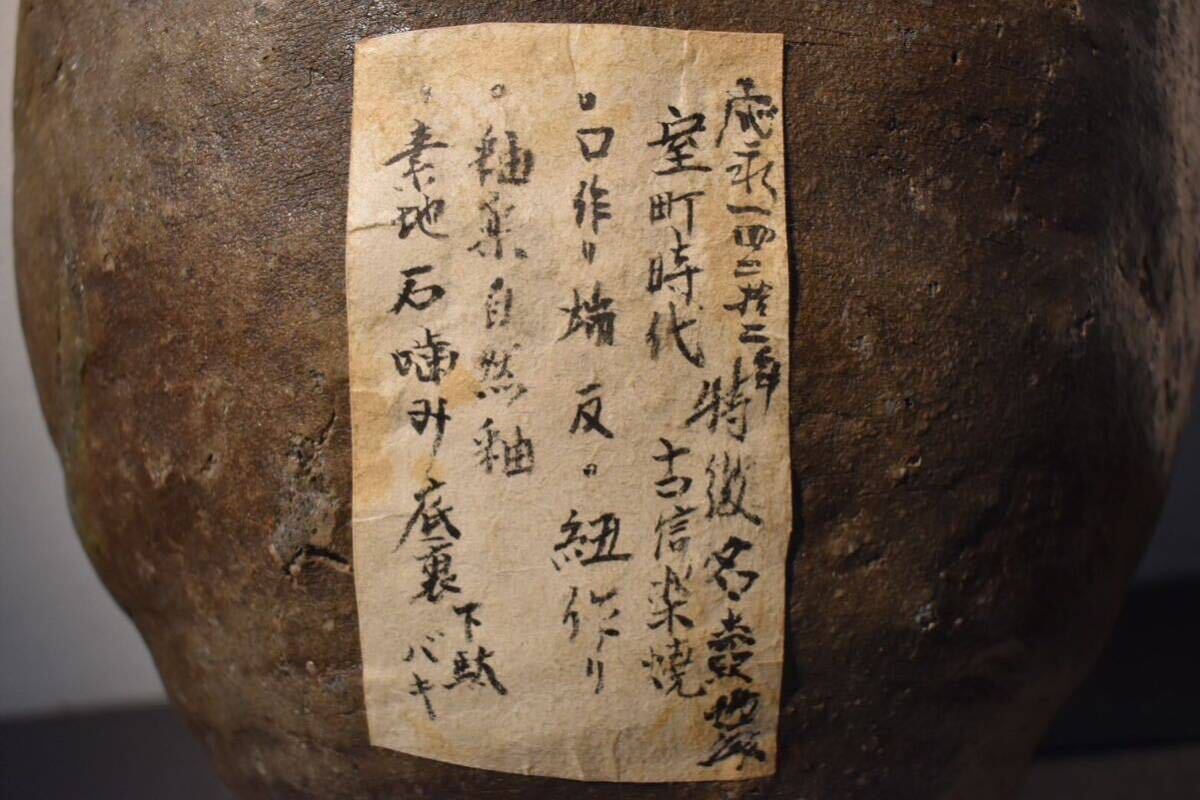 応永一四二拾二年
特徴名壷
室町時代 古信楽焼
・口作り端反。紐作り
。釉薬自然釉
・素地石噛み底裏下駄バキ